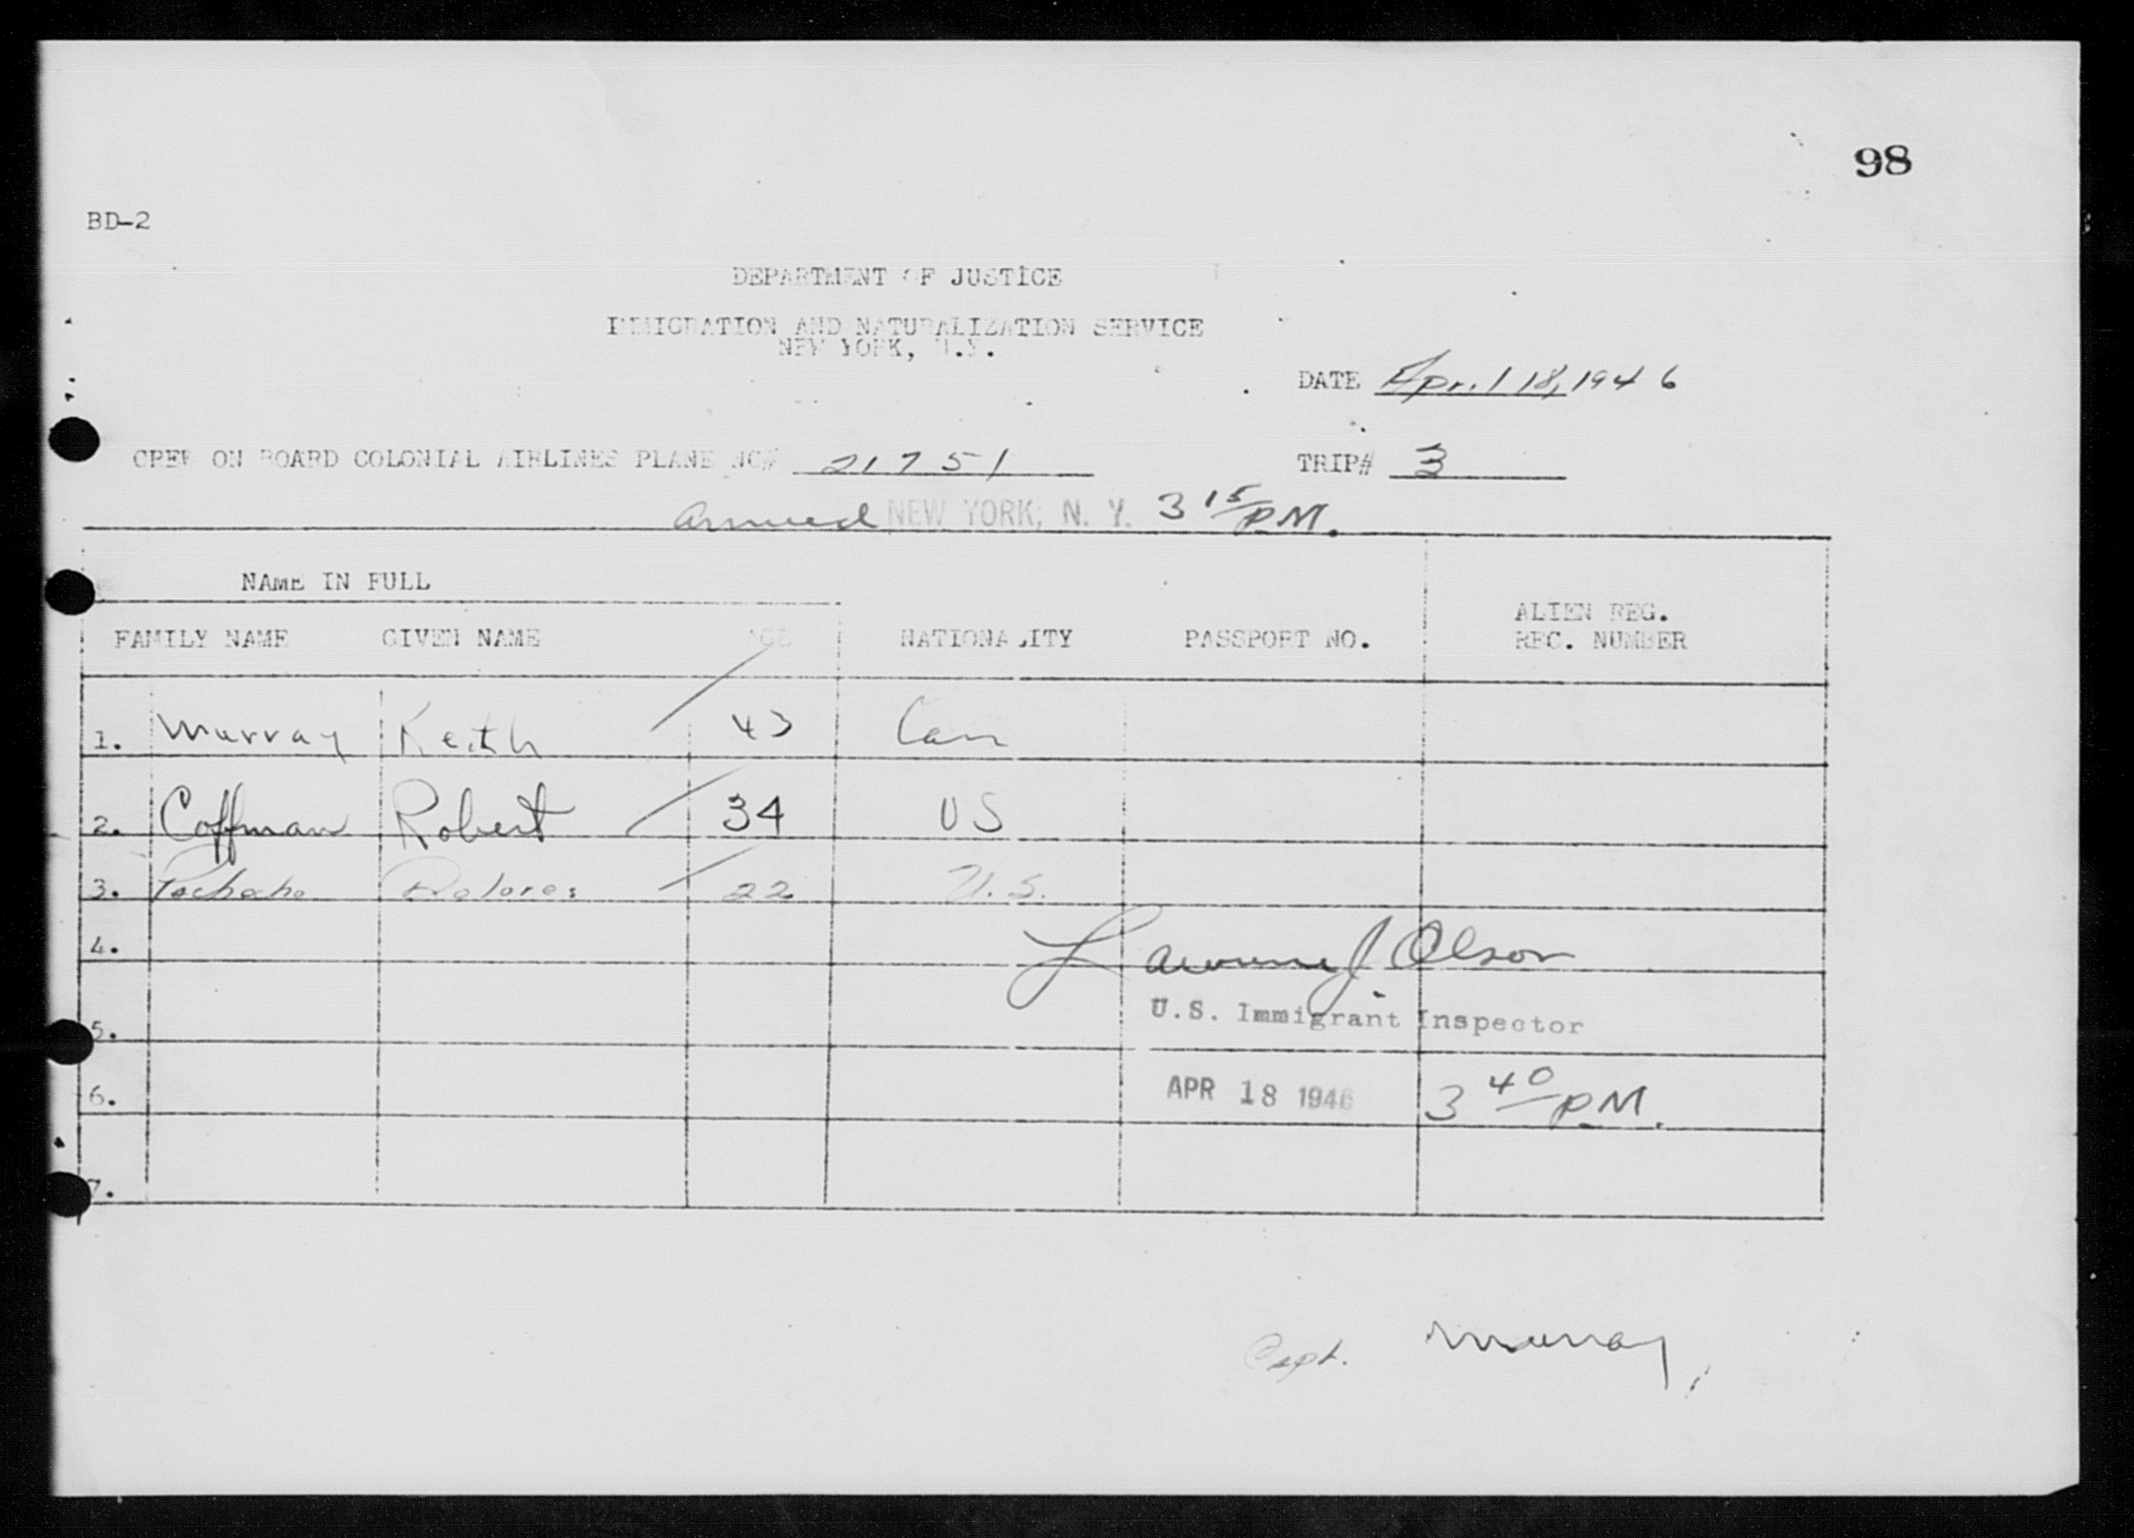 98
BD-2
DEPARTMENT OF JUSTICE
IMMIGRATION AND NATURALIZATION SERVICE
NEW YORK, N.Y.
DATE April 18, 1946
CREW ON BOARD COLONIAL AIRLINES PLANE NC# 21751 TRIP# 3
arrived NEW YORK, N. Y. 3 15/PM.
NAME IN FULL
ALIEN REG.
FAMILY NAME GIVEN NAME AGE NATIONALITY PASSPORT NO. REC. NUMBER
1. Murray Keith 43 Can
2. Coffman Robert 34 US
3. Dolores 22 U.S.
4. Lawrence J. Olson
5. U.S. Immigrant Inspector
6. APR 18 1946 3 40/PM.
7.
Capt. Murray